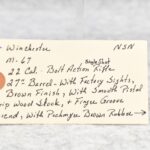 Winchester NSN
M-67 Single Shot
22 Cal. Bolt Action Rifle
27" Barrel - With Factory Sights,
Brown Finish, With Smooth Pistol
rip Wood Stock, + Finger Groove
end, With Brown Rubber →